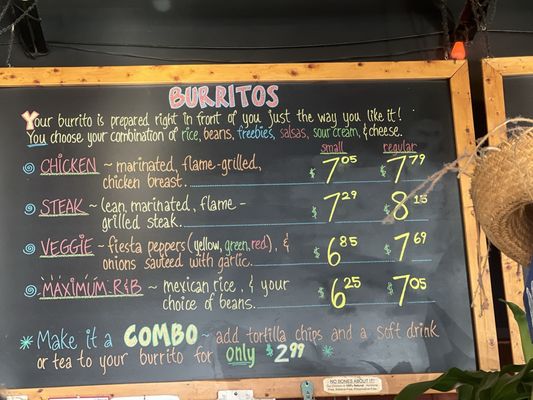 BURRITOS
Your burrito is prepared right in front of you just the way you like it!
You choose your combination of rice, beans, freebies, salsas, sour cream, & cheese.
small regular
CHICKEN ~ marinated, flame-grilled, $7.05 $7.79
chicken breast.
STEAK ~ lean, marinated, flame- $7.29 $8.15
grilled steak.
VEGGIE ~ fiesta peppers (yellow, green, red), & $6.85 $7.69
onions sauteed with garlic.
MAXIMUM R&B ~ mexican rice, & your $6.25 $7.05
choice of beans.
* Make it a COMBO ~ add tortilla chips and a soft drink
or tea to your burrito for only $2.99 *
NO BONES ABOUT IT